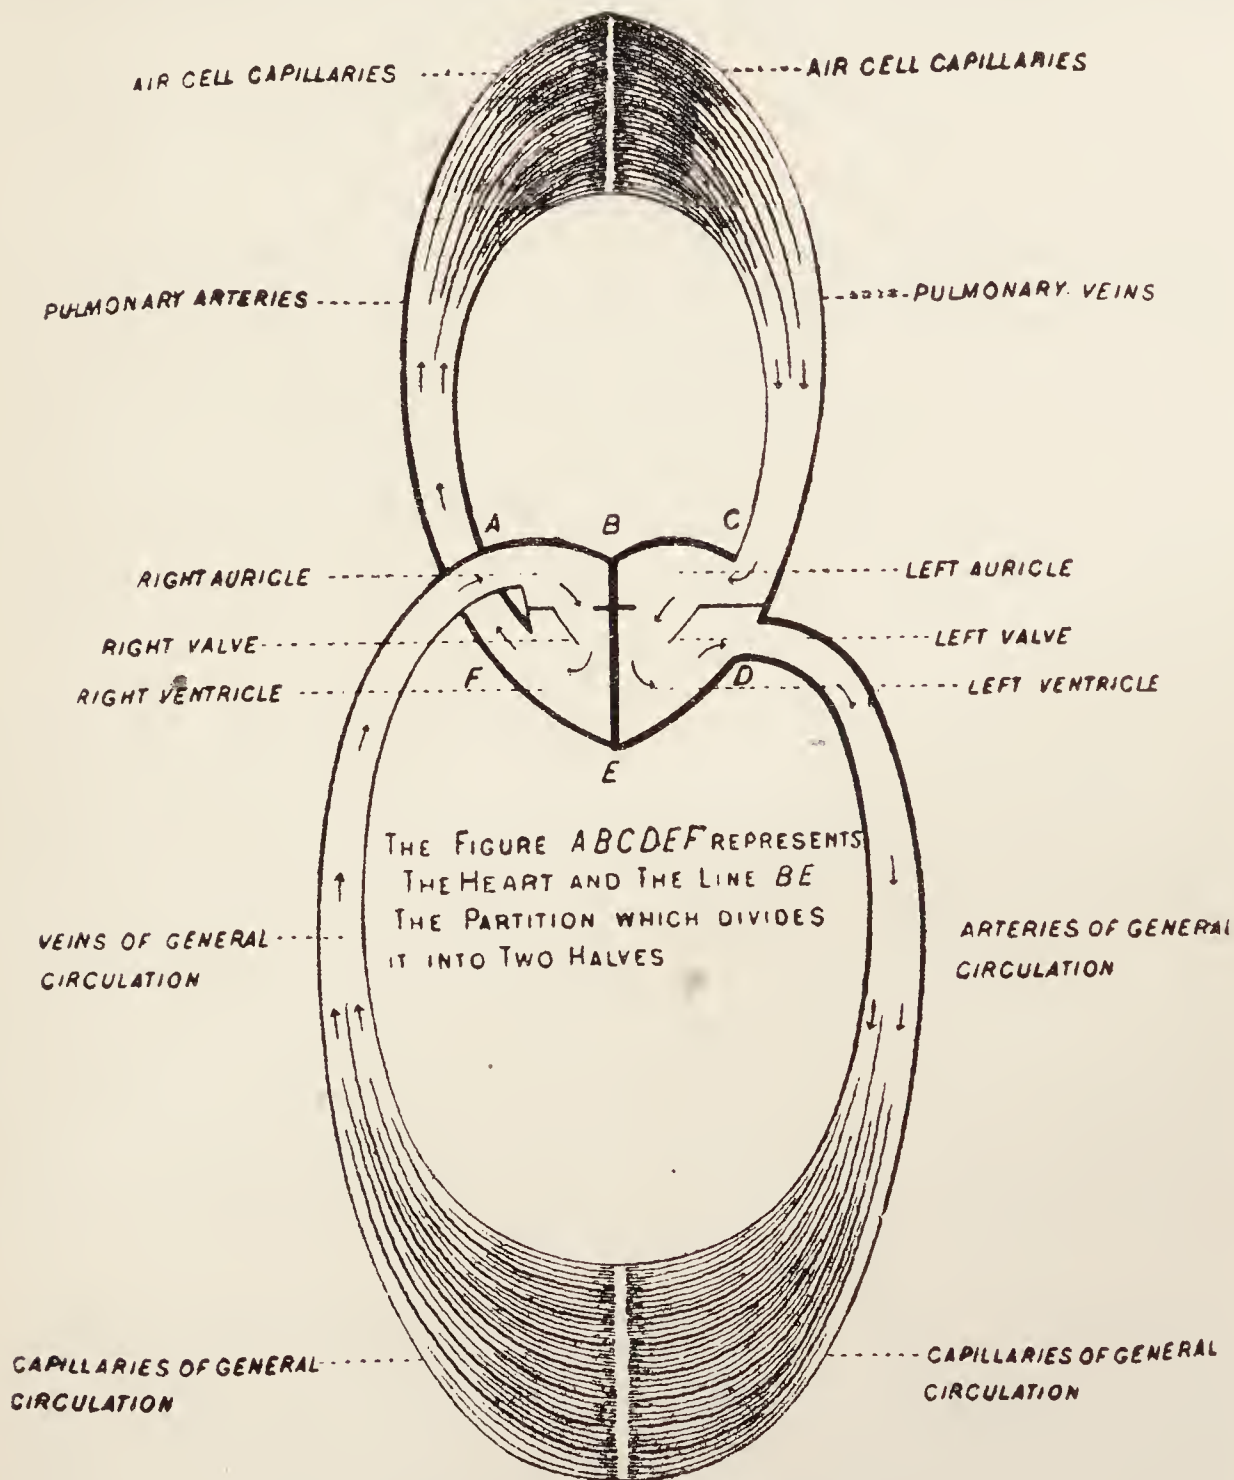 AIR CELL CAPILLARIES
AIR CELL CAPILLARIES
PULMONARY ARTERIES
PULMONARY VEINS
A
B
C
RIGHT AURICLE
LEFT AURICLE
RIGHT VALVE
LEFT VALVE
RIGHT VENTRICLE
F
D
LEFT VENTRICLE
E
THE FIGURE ABCDEF REPRESENTS
THE HEART AND THE LINE BE
THE PARTITION WHICH DIVIDES
IT INTO TWO HALVES
VEINS OF GENERAL
CIRCULATION
ARTERIES OF GENERAL
CIRCULATION
CAPILLARIES OF GENERAL
CIRCULATION
CAPILLARIES OF GENERAL
CIRCULATION